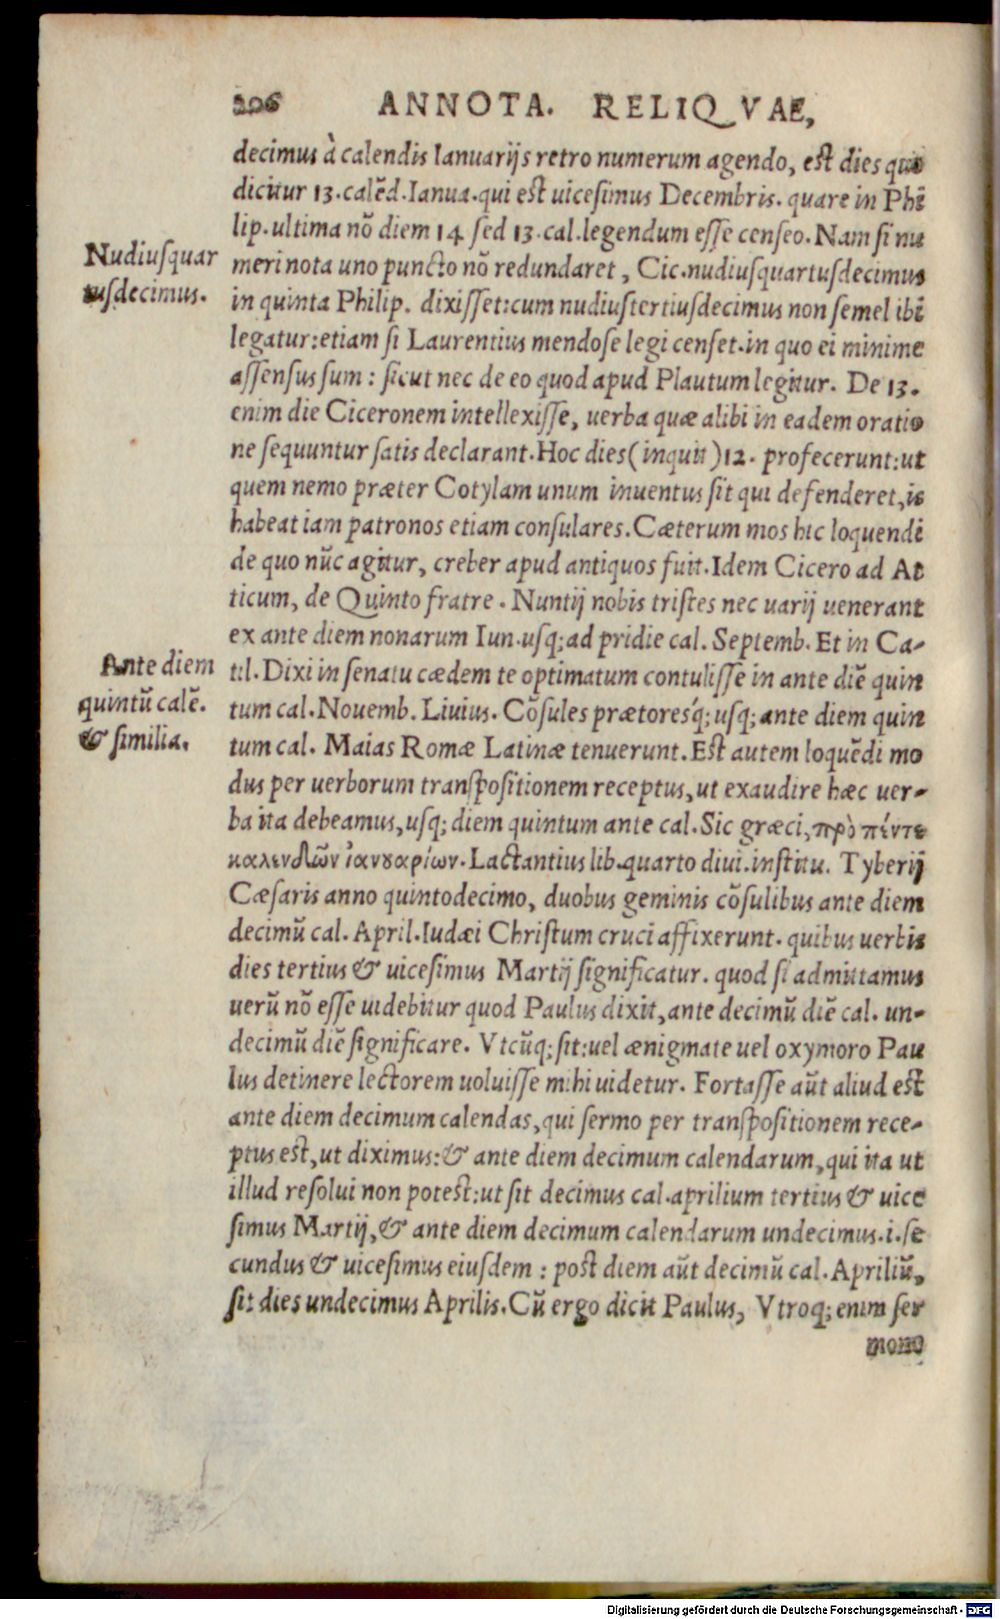 206 ANNOTA. RELIQVAE,
decimus à calendis Ianuarijs retro numerum agendo, est dies qui
dicitur 13. calẽd. Ianua. qui est uicesimus Decembris. quare in Phi
lip. ultima nõ diem 14 sed 13. cal. legendum esse censeo. Nam si nu
meri nota uno puncto nõ redundaret, Cic. nudiusquartusdecimus
in quinta Philip. dixisset: cum nudiustertiusdecimus non semel ibi
legatur: etiam si Laurentius mendose legi censet. in quo ei minime
assensus sum: sicut nec de eo quod apud Plautum legitur. De 13.
enim die Ciceronem intellexisse, uerba quæ alibi in eadem oratio
ne sequuntur satis declarant. Hoc dies (inquit) 12. profecerunt: ut
quem nemo præter Cotylam unum inuentus sit qui defenderet, is
habeat iam patronos etiam consulares. Cæterum mos hic loquendi
de quo nũc agitur, creber apud antiquos fuit. Idem Cicero ad At
ticum, de Quinto fratre. Nuntij nobis tristes nec uarij uenerant
ex ante diem nonarum Iun. usq; ad pridie cal. Septemb. Et in Ca-
til. Dixi in senatu cædem te optimatum contulisse in ante diẽ quin
tum cal. Nouemb. Liuius. Cõsules prætoresq́; usq; ante diem quin
tum cal. Maias Romæ Latinæ tenuerunt. Est autem loquẽdi mo
dus per uerborum transpositionem receptus, ut exaudire hæc uer-
ba ita debeamus, usq; diem quintum ante cal. Sic græci, πρὸ πέντε
καλενδῶν ἰανουαρίων. Lactantius lib. quarto diui. institu. Tyberij
Cæsaris anno quintodecimo, duobus geminis cõsulibus ante diem
decimũ cal. April. Iudæi Christum cruci affixerunt. quibus uerbis
dies tertius & uicesimus Martij significatur. quod si admittamus
uerũ nõ esse uidebitur quod Paulus dixit, ante decimũ diẽ cal. un-
decimũ diẽ significare. Vtcũq; sit: uel ænigmate uel oxymoro Pau
lus detinere lectorem uoluisse mihi uidetur. Fortasse aũt aliud est
ante diem decimum calendas, qui sermo per transpositionem rece-
ptus est, ut diximus: & ante diem decimum calendarum, qui ita ut
illud resolui non potest: ut sit decimus cal. aprilium tertius & uice
simus Martij, & ante diem decimum calendarum undecimus. i. se
cundus & uicesimus eiusdem: post diem aũt decimũ cal. Apriliũ,
sit dies undecimus Aprilis. Cũ ergo dicit Paulus, Vtroq; enim ser
mone
Nudiusquar
tusdecimus.
Ante diem
quintũ calẽ.
& similia.
Digitalisierung gefördert durch die Deutsche Forschungsgemeinschaft - DFG